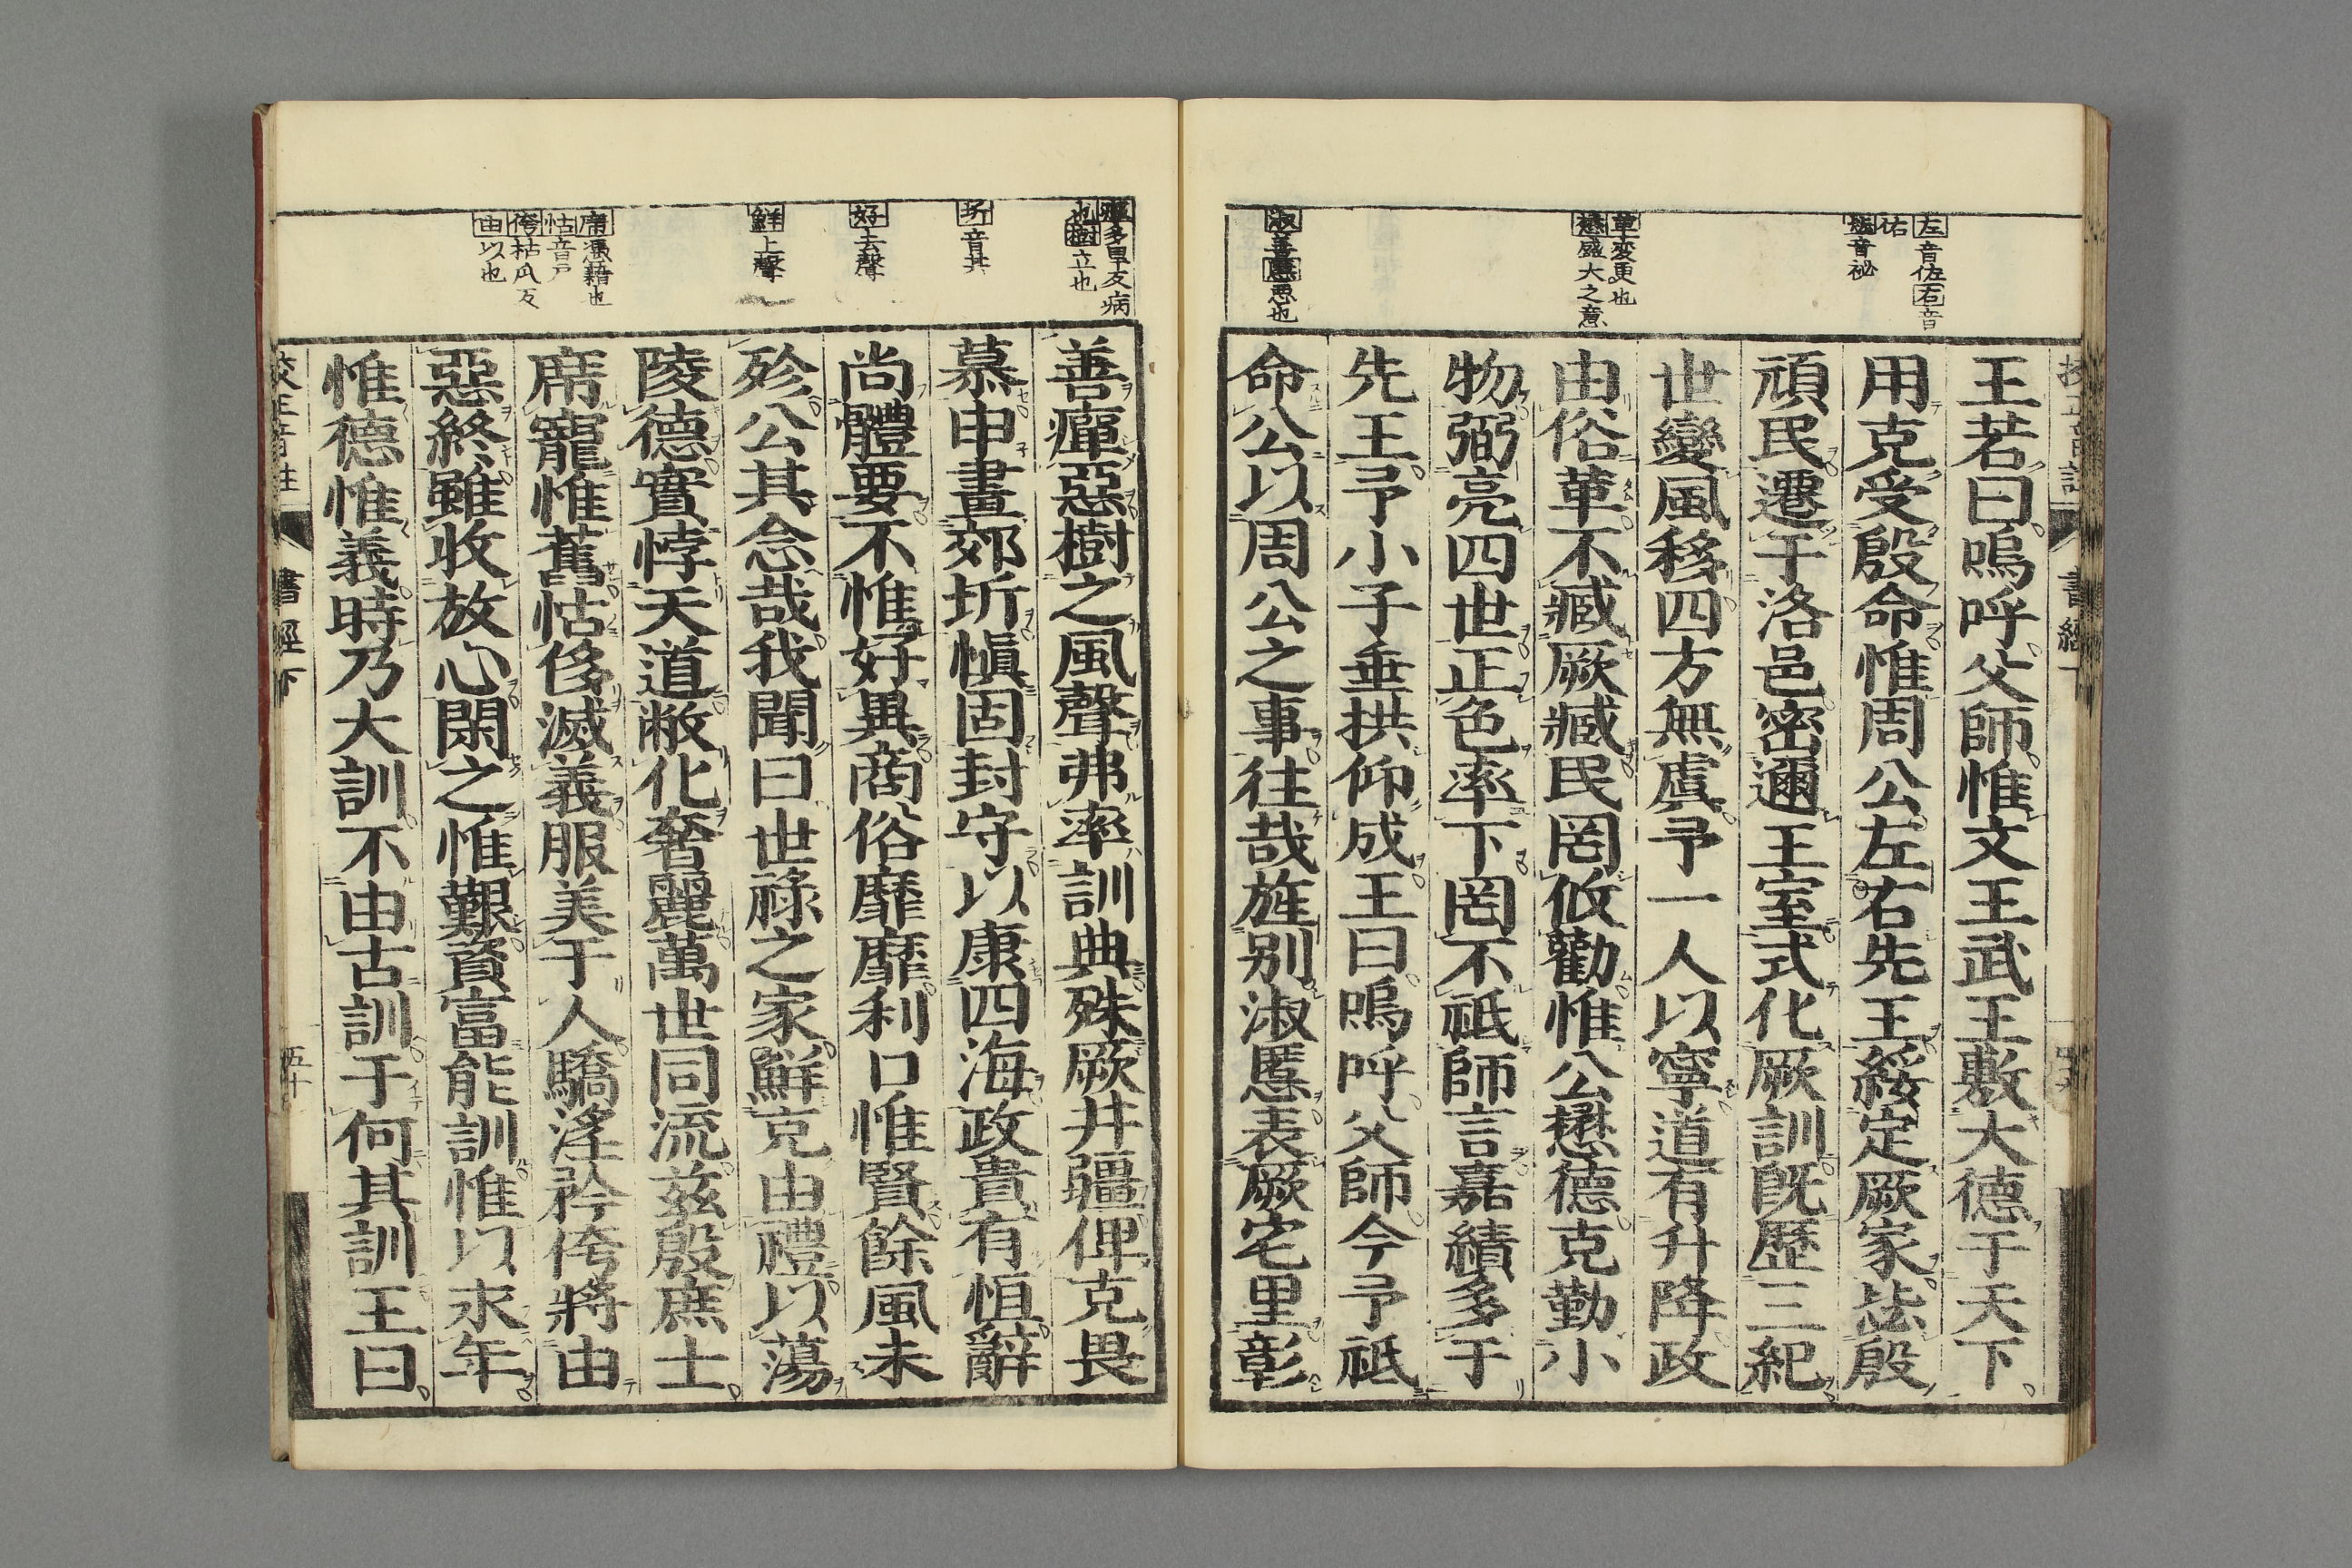 左音佐右音
佑
毖音祕
革変更也
懋盛大之意
淑善慝悪也
王若曰嗚呼父師惟文王武王敷大德于天下
用克受殷命惟周公左右先王綏定厥家毖殷
頑民遷于洛邑密邇王室式化厥訓旣歷三紀
世變風移四方無虞予一人以寧道有升降政
由俗革不臧厥臧民罔攸勸惟公懋德克勤小
物弼亮四世正色率下罔不祗師言嘉績多于
先王予小子垂拱仰成王曰嗚呼父師今予祗
命公以周公之事往哉旌别淑慝表厥宅里彰
癉多旱反病
也樹立也
圻音其
好去聲
鮮上聲
席憑藉也
怙音戸
侉枯瓜反
由以也
善癉惡樹之風聲弗率訓典殊厥井疆俾克畏
慕申畫郊圻愼固封守以康四海政貴有恒辭
尚體要不惟好異商俗靡靡利口惟賢餘風未
殄公其念哉我聞曰世祿之家鮮克由禮以蕩
陵德實悖天道敝化奢麗萬世同流茲殷庶士
席寵惟舊怙侈滅義服美于人驕淫矜侉將由
惡終雖收放心閑之惟艱資富能訓惟以永年
惟德惟義時乃大訓不由古訓于何其訓王曰
校正音註 書經下 五十